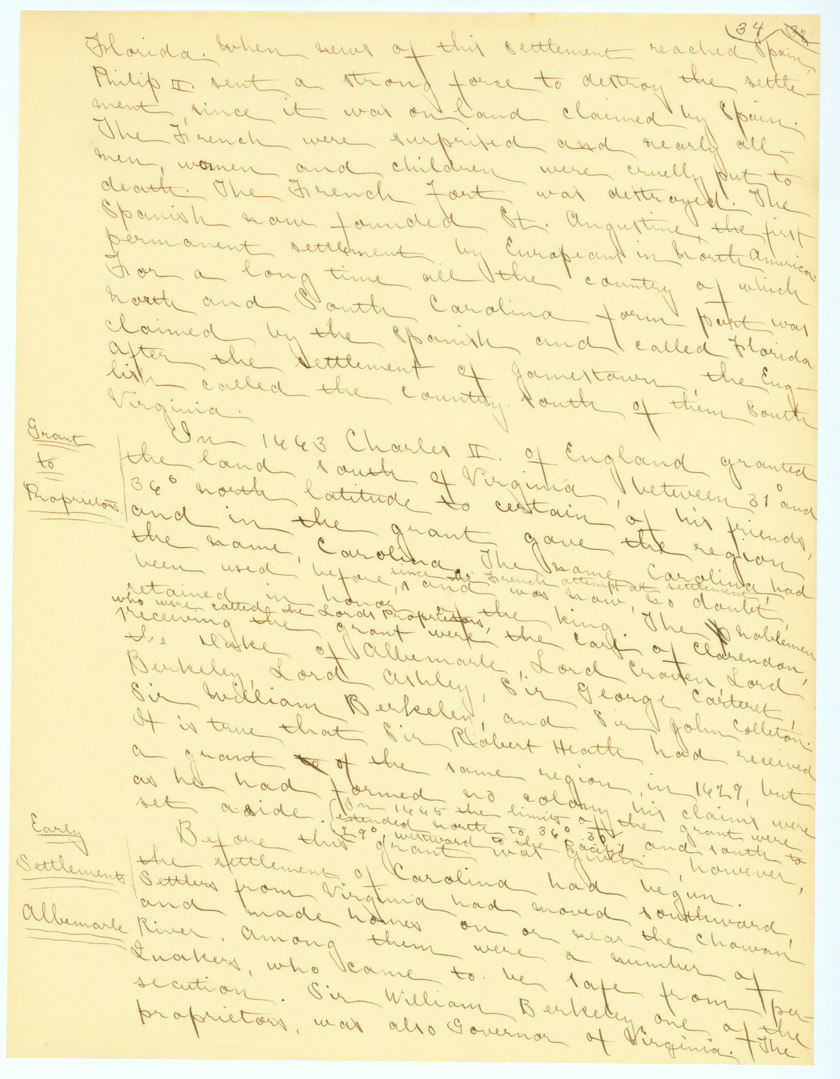 34
Florida. When news of this settlement reached Spain,
Philip II. sent a strong force to destroy the settle-
ment, since it was on land claimed by Spain.
The French were surprised and nearly all —
men, women and children were cruelly put to
death. The French Fort was destroyed. The
Spanish now founded St. Augustine, the first
permanent settlement by Europeans in North America.
For a long time all the country of which
North and South Carolina form part was
claimed by the Spanish and called Florida.
After the settlement of Jamestown, the Eng-
lish called the country south of them South
Virginia.
Grant
to
Proprietors
In 1663 Charles II. of England granted
the land south of Virginia, between 31° and
36° north latitude to certain of his friends,
and in the grant gave the region
the name, Carolina. The name Carolina had
been used before, since the French attempt at settlement,
and was now, no doubt,
retained in honor of the king. The noblemen
who were called the Lords Proprietors,
receiving the grant were the Earl of Clarendon,
the Duke of Albemarle, Lord Craven, Lord
Berkeley, Lord Ashley, Sir George Carteret,
Sir William Berkeley, and Sir John Colleton.
It is true that Sir Robert Heath had received
a grant of the same region, in 1629, but
as he had formed no colony his claims were
set aside. (In 1665 the limits of the grant were
extended north to 36° 30' and south to
29°, westward to the Pacific.)
Early
Settlements
Albemarle
Before this grant was given, however,
the settlement of Carolina had begun.
Settlers from Virginia had moved southward,
and made homes on or near the Chowan
River. Among them were a number of
Quakers, who came to be safe from per-
secution. Sir William Berkeley, one of the
proprietors, was also Governor of Virginia. The